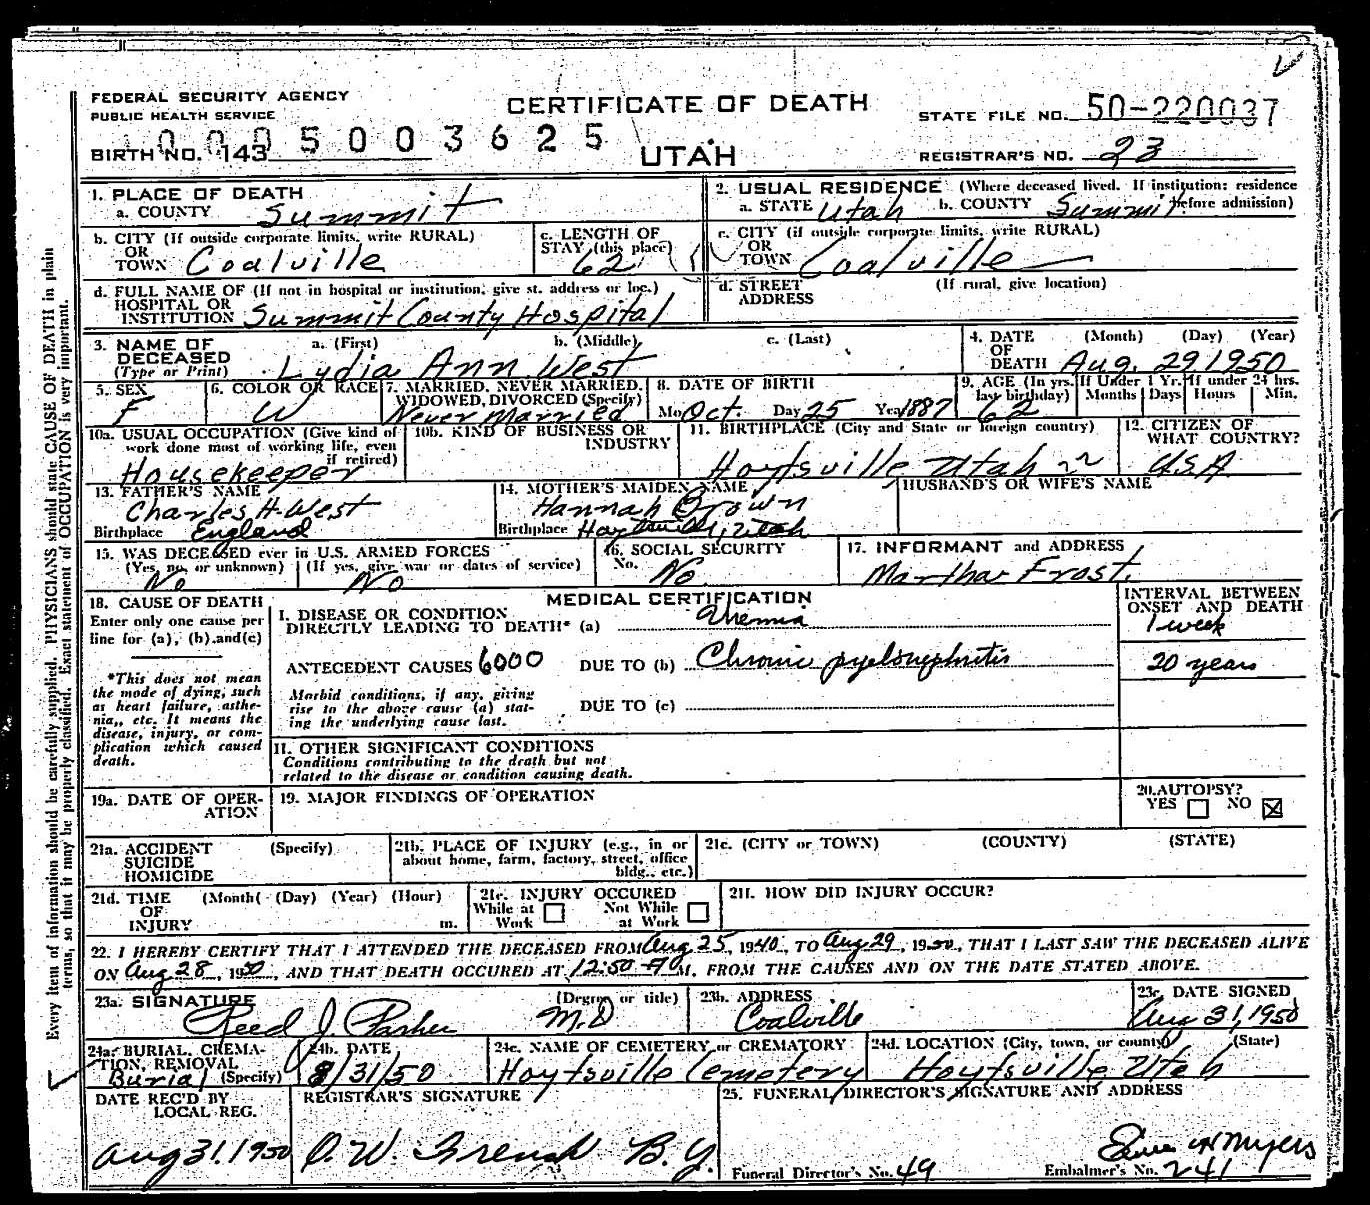 FEDERAL SECURITY AGENCY
PUBLIC HEALTH SERVICE
CERTIFICATE OF DEATH
STATE FILE NO. 50-220037
0005003625
BIRTH NO. 143
UTAH
REGISTRAR'S NO. 23
1. PLACE OF DEATH
a. COUNTY Summit
2. USUAL RESIDENCE (Where deceased lived. If institution: residence before admission)
a. STATE Utah b. COUNTY Summit
b. CITY (If outside corporate limits, write RURAL)
OR
TOWN Coalville
c. LENGTH OF
STAY (this place)
62
c. CITY (if outside corporate limits, write RURAL)
OR
TOWN Coalville
d. FULL NAME OF (If not in hospital or institution, give st. address or loc.)
HOSPITAL OR
INSTITUTION Summit County Hospital
d. STREET (If rural, give location)
ADDRESS
3. NAME OF a. (First) b. (Middle) c. (Last)
DECEASED
(Type or Print) Lydia Ann West
4. DATE (Month) (Day) (Year)
OF
DEATH Aug. 29 1950
5. SEX
F
6. COLOR OR RACE
W
7. MARRIED, NEVER MARRIED,
WIDOWED, DIVORCED (Specify)
Never Married
8. DATE OF BIRTH
Mo Oct. Day 25 Year 1887
9. AGE (In yrs. last birthday) 62
If Under 1 Yr. Months Days
If under 24 hrs. Hours Min.
10a. USUAL OCCUPATION (Give kind of
work done most of working life, even
if retired)
Housekeeper
10b. KIND OF BUSINESS OR
INDUSTRY
11. BIRTHPLACE (City and State or foreign country)
Hoytsville Utah
12. CITIZEN OF
WHAT COUNTRY?
U.S.A
13. FATHER'S NAME
Charles H. West
Birthplace England
14. MOTHER'S MAIDEN NAME
Hannah Brown
Birthplace Hoytsville, Utah
HUSBAND'S OR WIFE'S NAME
15. WAS DECEASED ever in U.S. ARMED FORCES
(Yes, no, or unknown) (If yes, give war or dates of service)
No No
16. SOCIAL SECURITY
No. No.
17. INFORMANT and ADDRESS
Martha Frost.
18. CAUSE OF DEATH
Enter only one cause per
line for (a), (b), and (c)
*This does not mean
the mode of dying, such
as heart failure, asthe-
nia, etc. It means the
disease, injury, or com-
plication which caused
death.
MEDICAL CERTIFICATION
INTERVAL BETWEEN
ONSET AND DEATH
I. DISEASE OR CONDITION
DIRECTLY LEADING TO DEATH* (a) Uremia
1 week
ANTECEDENT CAUSES 6000 DUE TO (b) Chronic pyelonephritis
20 years
Morbid conditions, if any, giving
rise to the above cause (a) stat-
ing the underlying cause last.
DUE TO (c)
II. OTHER SIGNIFICANT CONDITIONS
Conditions contributing to the death but not
related to the disease or condition causing death.
19a. DATE OF OPER-
ATION
19. MAJOR FINDINGS OF OPERATION
20. AUTOPSY?
YES NO
21a. ACCIDENT (Specify)
SUICIDE
HOMICIDE
21b. PLACE OF INJURY (e.g., in or
about home, farm, factory, street, office
bldg., etc.)
21c. (CITY or TOWN) (COUNTY) (STATE)
21d. TIME (Month( (Day) (Year) (Hour)
OF
INJURY m.
21e. INJURY OCCURED
While at Work Not While at Work
21f. HOW DID INJURY OCCUR?
22. I HEREBY CERTIFY THAT I ATTENDED THE DECEASED FROM Aug 25, 1940, TO Aug 29, 1950, THAT I LAST SAW THE DECEASED ALIVE
ON Aug 28, 1950, AND THAT DEATH OCCURED AT 12:50 A M, FROM THE CAUSES AND ON THE DATE STATED ABOVE.
23a. SIGNATURE (Degree or title)
Reed J. M.D
23b. ADDRESS
Coalville
23c. DATE SIGNED
Aug 31, 1950
24a. BURIAL, CREMA-
TION, REMOVAL
Burial (Specify)
24b. DATE
8/31/50
24c. NAME OF CEMETERY or CREMATORY
Hoytsville Cemetery
24d. LOCATION (City, town, or county) (State)
Hoytsville Utah
DATE REC'D BY
LOCAL REG.
Aug 31, 1950
REGISTRAR'S SIGNATURE
O. W. French B.Y.
25. FUNERAL DIRECTOR'S SIGNATURE AND ADDRESS
Myers
Funeral Director's No. 49 Embalmer's No. 241
Every item of information should be carefully supplied. PHYSICIANS should state CAUSE OF DEATH in plain
terms, so that it may be properly classified. Exact statement of OCCUPATION is very important.